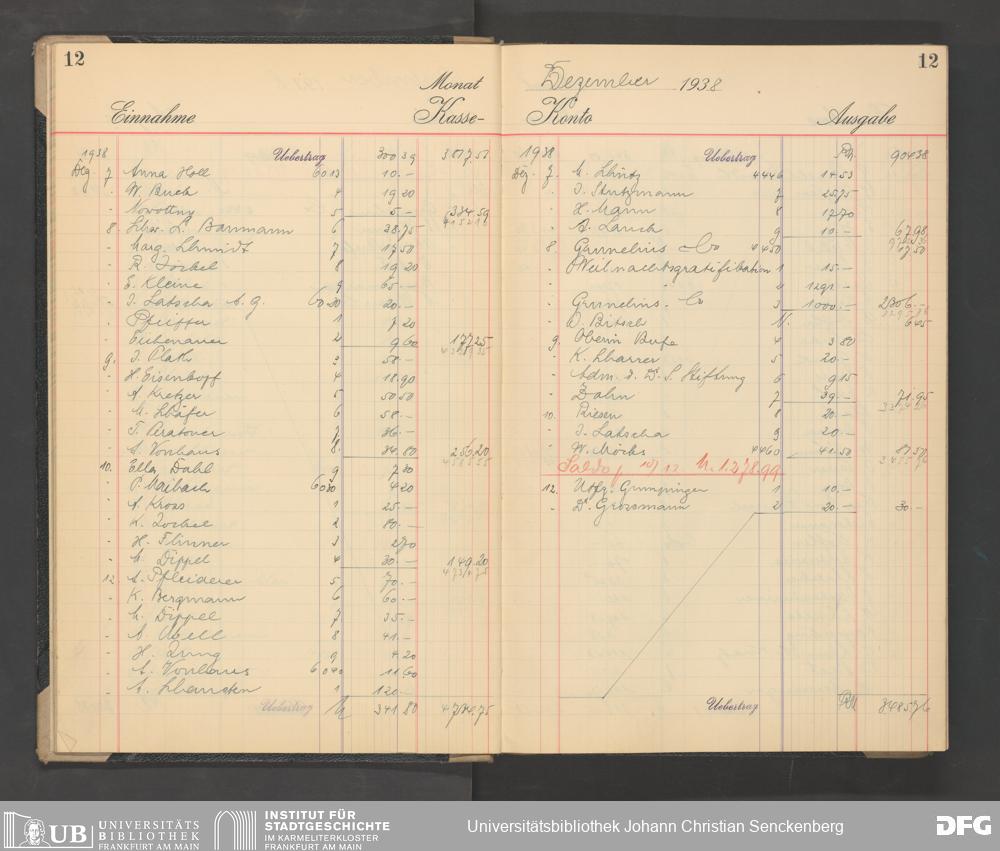 12
Monat
Einnahme Kasse-
1938 Uebertrag 300 39
Dez. 7 Anna Holl 6013 10.-
W. Buch 4 19 20
Nowottny 5 5.- 334,59
8. L. Baumann 6 28,75
Marg. Schmidt 7 17 50
R. 8 19 20
E. Kleine 9 65.-
J. Latscha A.G. 6020 20.-
Pfeiffer 1 7 20
2 9 60 177 25
9. J. Plath 3 58.-
H. Eisenkopf 4 18 90
A. Kretzer 5 50 50
M. Schäfer 6 58.-
7 36.-
A. Vonhaus 8. 34.80 256,20
10. Ella Dahl 9 7 20
P. Maibach 6030 4 20
A. Kross 1 25.-
2 80.-
H. Flinner 3 2 70
M. Dippel 4 30.- 149.20
12. A. Pfleiderer 5 70.-
K. Bergmann 6 60.-
M. Dippel 7 35.-
8 41.-
H. Jung 9 4 20
A. Vonhaus 6040 11 60
1 120.-
Uebertrag M 341 80 4734.75
Dezember 1938
12
Konto Ausgabe
1938 Uebertrag RM 904 38
Dez. 7. 4446 14 53
J. Stutzmann 7 25,75
H. Mann 8 17 70
A. Lauch 9 10.- 67.98
8. Grunelius & Co 4450 17 50
Weihnachtsgratifikation 1 15.-
2 1291.-
Grunelius & Co 3 1000.- 2306.-
D. Bitsch N. 6 45
9. Oberin Bufe 4 3 80
K. Scharrer 5 20.-
Adm. d. Dr. S. Stiftung 6 9 15
Zahn 7 39.- 71.95
10. Riesen 8 20.-
J. Latscha 9 20.-
W. Möcks 4460 41.50
Saldo p. 10/12 M. 1.278.99
12. Utfz. Grumpinger 1 10.-
Dr. Grossmann 2 20.- 30.-
Uebertrag RM 3485 76
UB UNIVERSITÄTS
BIBLIOTHEK
FRANKFURT AM MAIN
INSTITUT FÜR
STADTGESCHICHTE
IM KARMELITERKLOSTER
FRANKFURT AM MAIN
Universitätsbibliothek Johann Christian Senckenberg
DFG